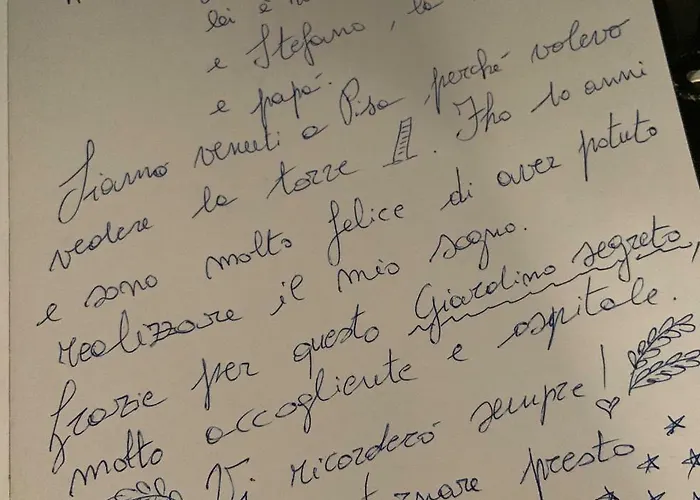 lei è
e Stefano, la
e papà.
Siamo venuti a Pisa perché volevo
vedere la torre. Io ho 10 anni
e sono molto felice di aver potuto
realizzare il mio sogno.
Grazie per questo Giardino segreto,
molto accogliente e ospitale.
Vi ricorderò sempre!
tornare presto